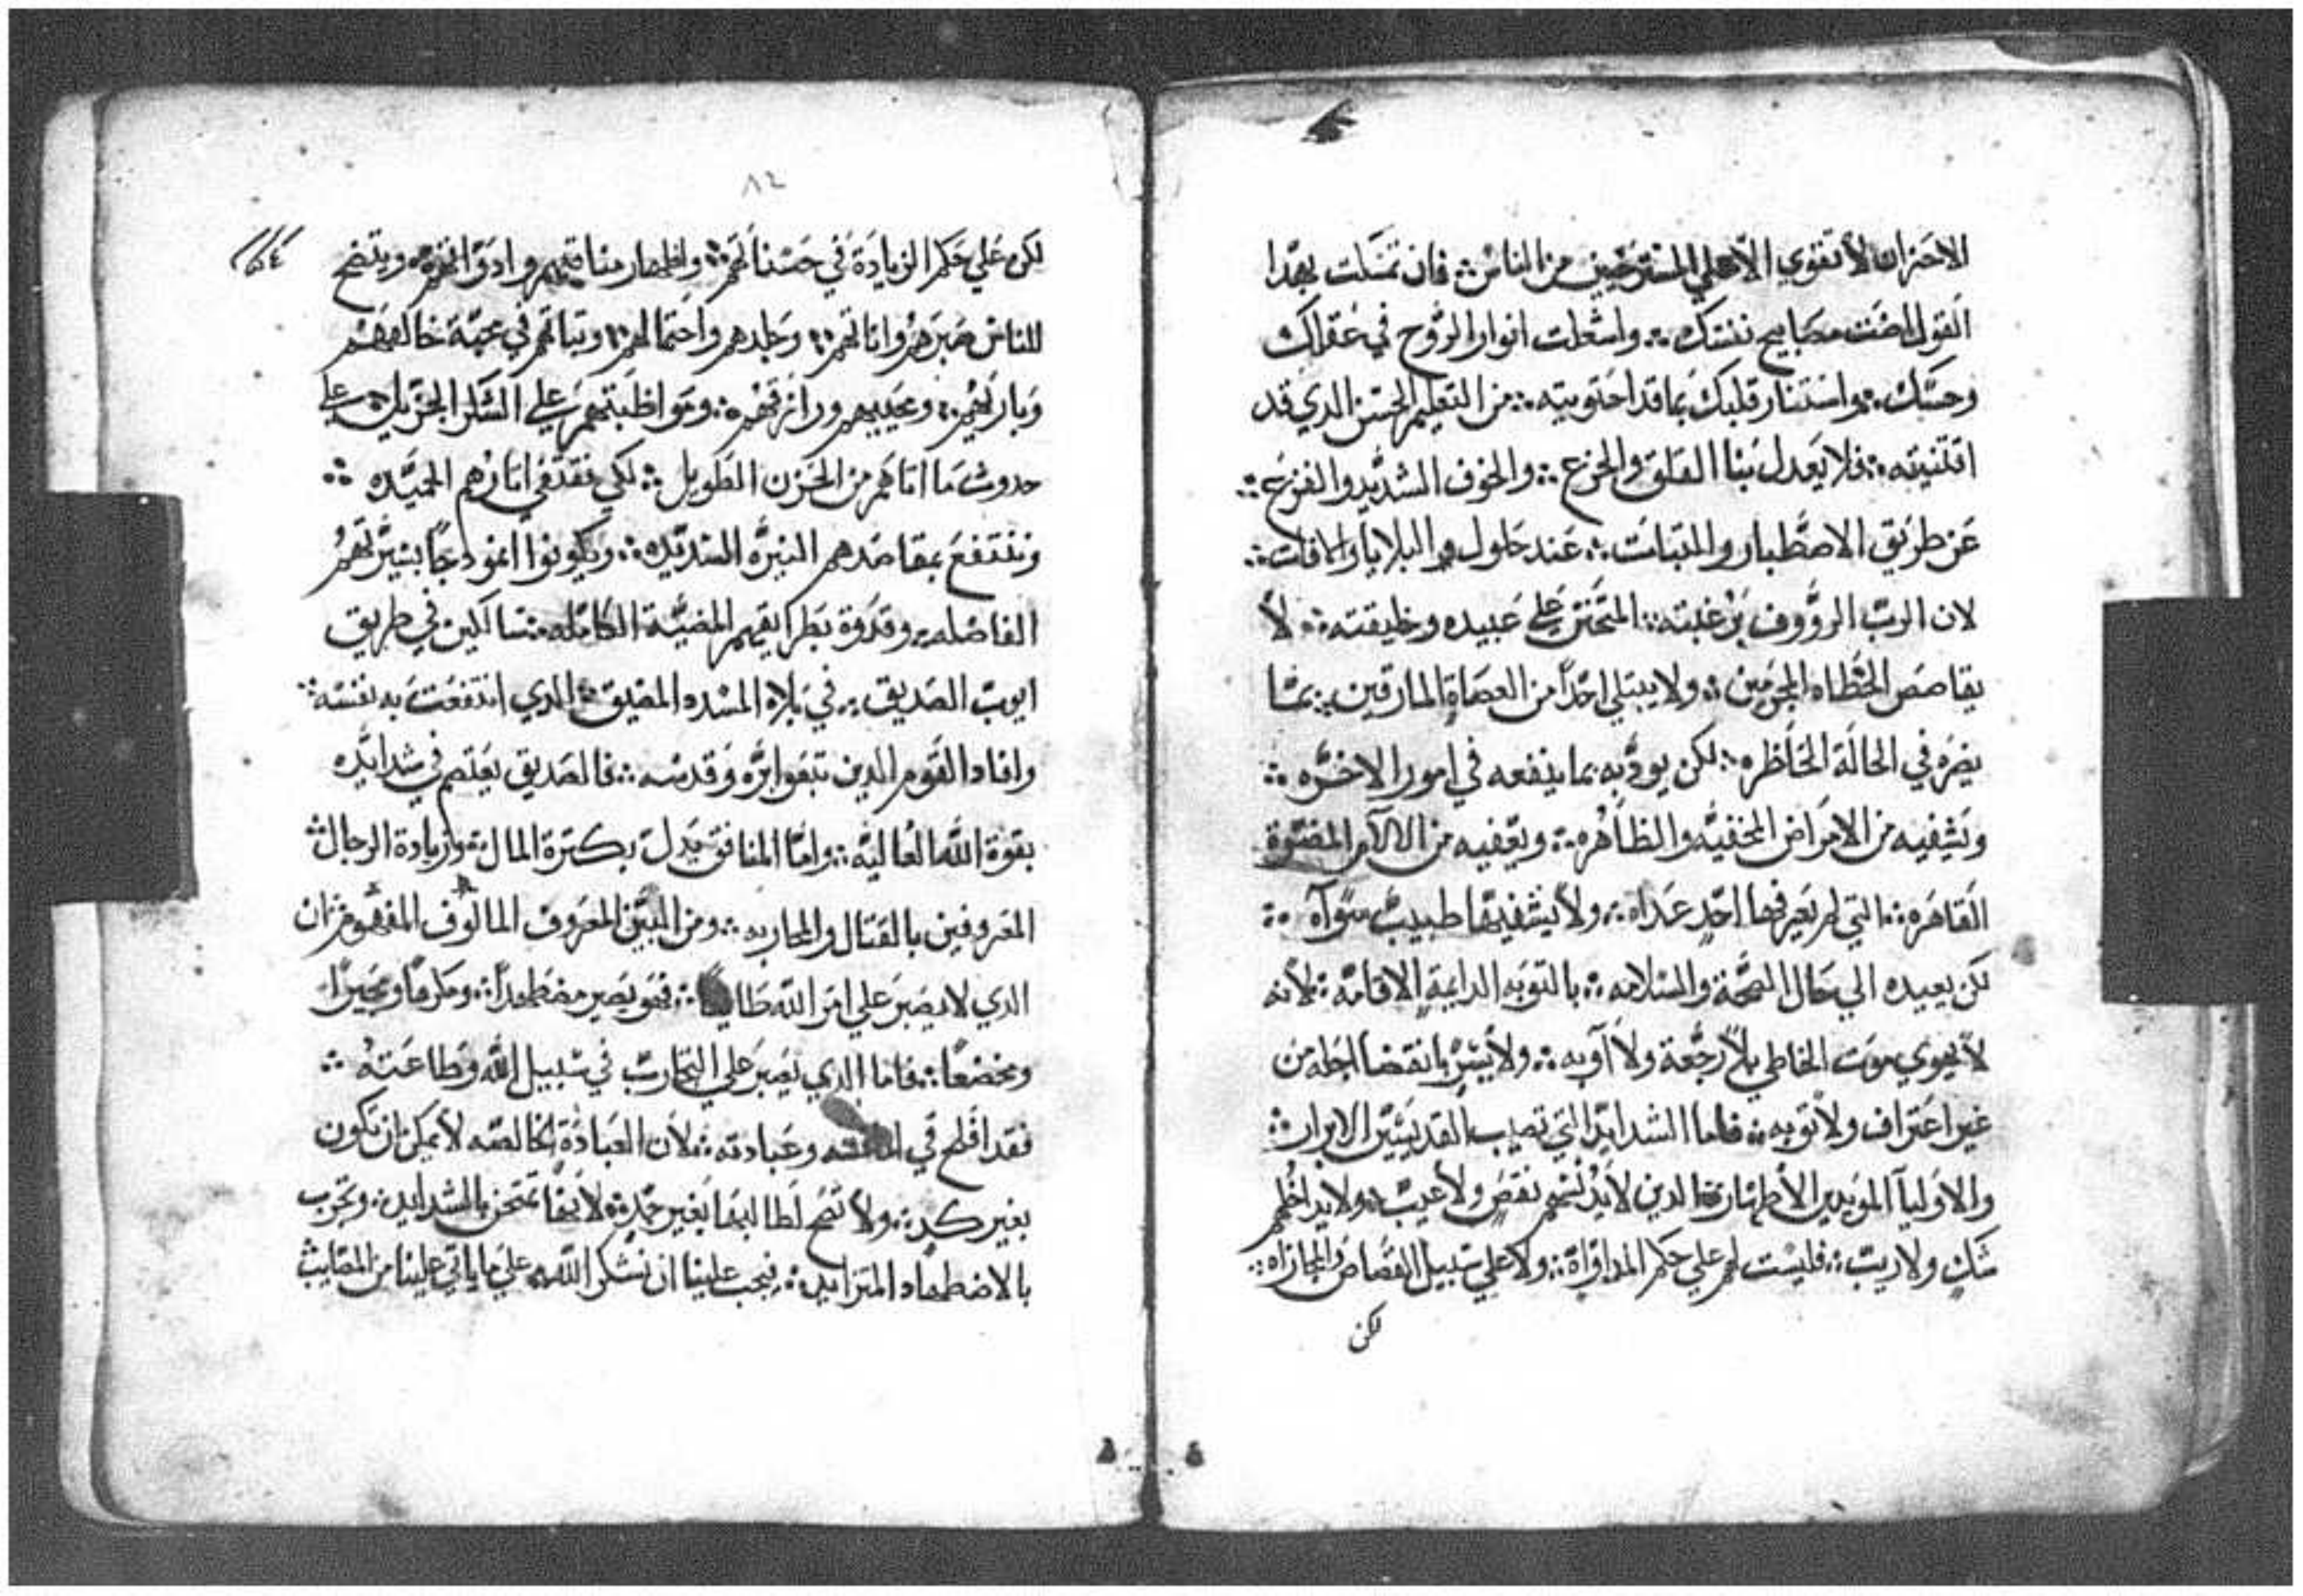 الاحزان لا تقوي الا علي المسترخيين من الناس ∴ فان تمسكت بهدا
القول اضت مصابيح نفسك ∴ واشعلت انوار الروح في عقلك
وحسك ∴ واستنار قلبك بما قد احتويته ∴ من التعليم الحسن الدي قد
اقتنيته ∴ فلا يعدل بنا القلق والجزع ∴ والخوف الشديد والفزع ∴
عن طريق الاصطبار والتبات ∴ عند حلول البلايا والافات ∴
لان الرب الرووف بن غبته ∴ المتحنن علي عبيده وخليقته ∴ لا
يقاصص الخطاه المجرمين ∴ ولا يبتلي احداً من العصاة المارقين ∴ بما
يضره في الحالة الحاظره ∴ لكن يودبه بما ينفعه في امور الاخره ∴
ويشفيه من الامراض المخفيه والظاهره ∴ ويعفيه من الالام المضرة
القاهره ∴ التي لم يعرفها احد عداه ∴ ولا يشفيها طبيب سواه ∴
لكن يعيده الي حال الصحة والسلامه ∴ بالتوبه الدايمة الاقامه ∴ لانه
لا يهوي موت الخاطي بلا رجعة ولا اوبه ∴ ولا يسر بانقضا اجله من
غير اعتراف ولا توبه ∴ فاما الشدايد التي تصيب القديسين الابرار ∴
والاوليا المويدين الاطهار ∴ الدين لا يدنسهم نقص ولا عيب ∴ ولا يداخلهم
شك ولا ريب ∴ فليست لهم علي حكم المداواة ∴ ولا علي سبيل القصاص والمجازاه ∴
لكن
٨٢
لكن علي حكم الزيادة في حسناتهم ∴ واظهار مناقبهم وادواتهم ∴ ويتضح
للناس صبرهم واناتهم ∴ وجلدهم واحتمالهم ∴ وتباتهم في محبة خالقهم
وباريهم ∴ ومحييهم ورازقهم ∴ ومواظبتهم علي الشكر الجزيل ∴ علي
حدوث ما اتاهم من الحزن الطويل ∴ لكي نقتفي اتارهم الحميده ∴
وننتفع بمقاصدهم النيره السديده ∴ ويكونوا انمودجاً بسيرتهم
الفاضله ∴ وقدوة بطرايقهم المضية الكامله ∴ سالكين في طريق
ايوب الصديق ∴ في بلاه المشده المضيق ∴ الدي انتفعت به نفسه ∴
وافاد القوم الدين تبعوا بره وقدسه ∴ فالصديق يعتصم في شدايده
بقوة الله العاليه ∴ واما المنافق يدل بكترة المال ∴ وزيادة الرجال ∴
المعروفين بالقتال والمحاربه ∴ ومن المبين المعروف المالوف المفهوم ∴ ان
الدي لا يصبر علي امر الله طايعا ∴ فهو يصير مضطهداً ∴ ومكرهاً ومجبراً
ومخضعاً ∴ فاما الدي يصبر علي التجارب في سبيل الله وطاعته ∴
فقد افلح في وعبادته ∴ لان العبادة الخالصه لا يمكن ان تكون
بغير كد ∴ ولا تصح لطالبها بغير جهد ∴ لانها تمتحن بالشدايد ∴ وتجرب
بالاضطهاد المتزايد ∴ فيجب علينا ان نشكر الله علي ما ياتي علينا من المصايب